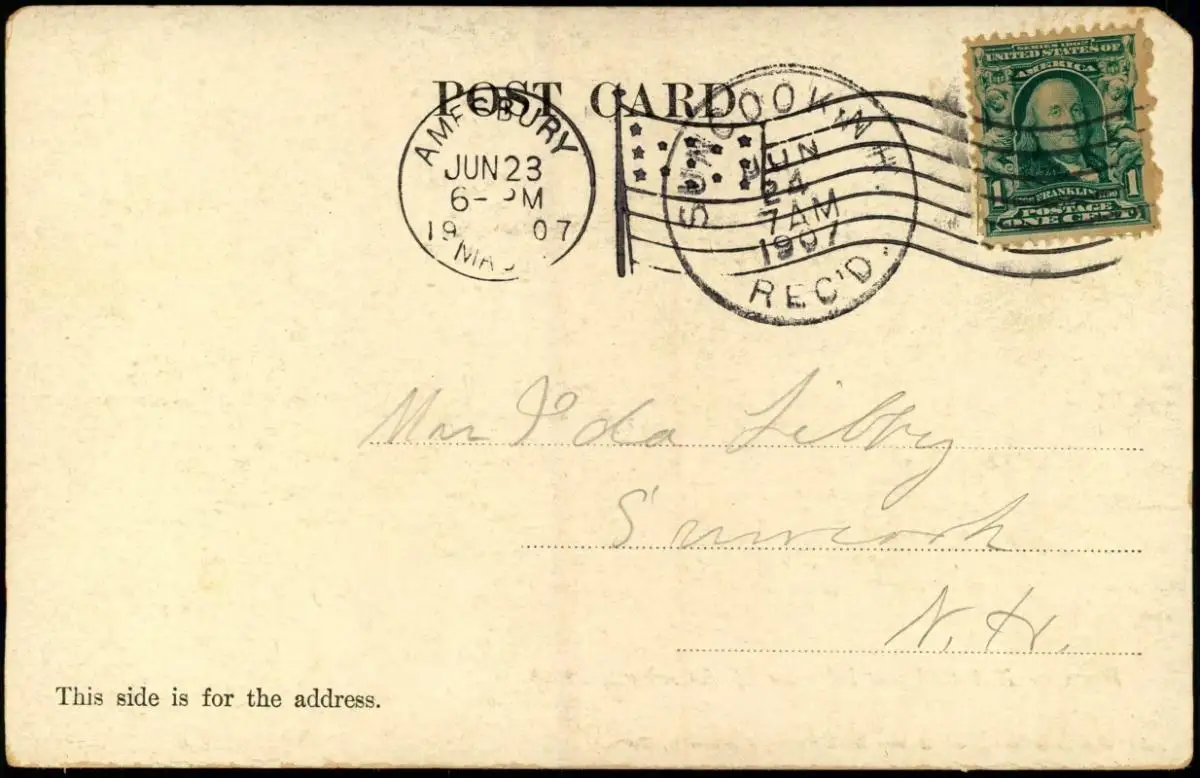 POST CARD
AMESBURY
JUN 23
6- PM
19 07
MAS
SUNCOOK, N.H.
JUN
24
7 AM
1907
REC'D.
SERIES 1902
UNITED STATES OF
AMERICA
1 FRANKLIN 1
POSTAGE
ONE CENT
Mrs Ida Libby
Suncook
N.H.
This side is for the address.